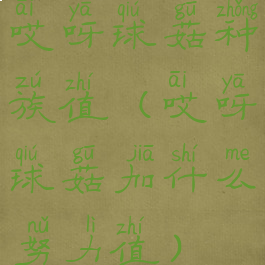 āi yā qiú gū zhǒng
哎呀球菇种
zú zhí āi yā
族值（哎呀
qiú gū jiā shí me
球菇加什么
nǔ lì zhí
努力值）